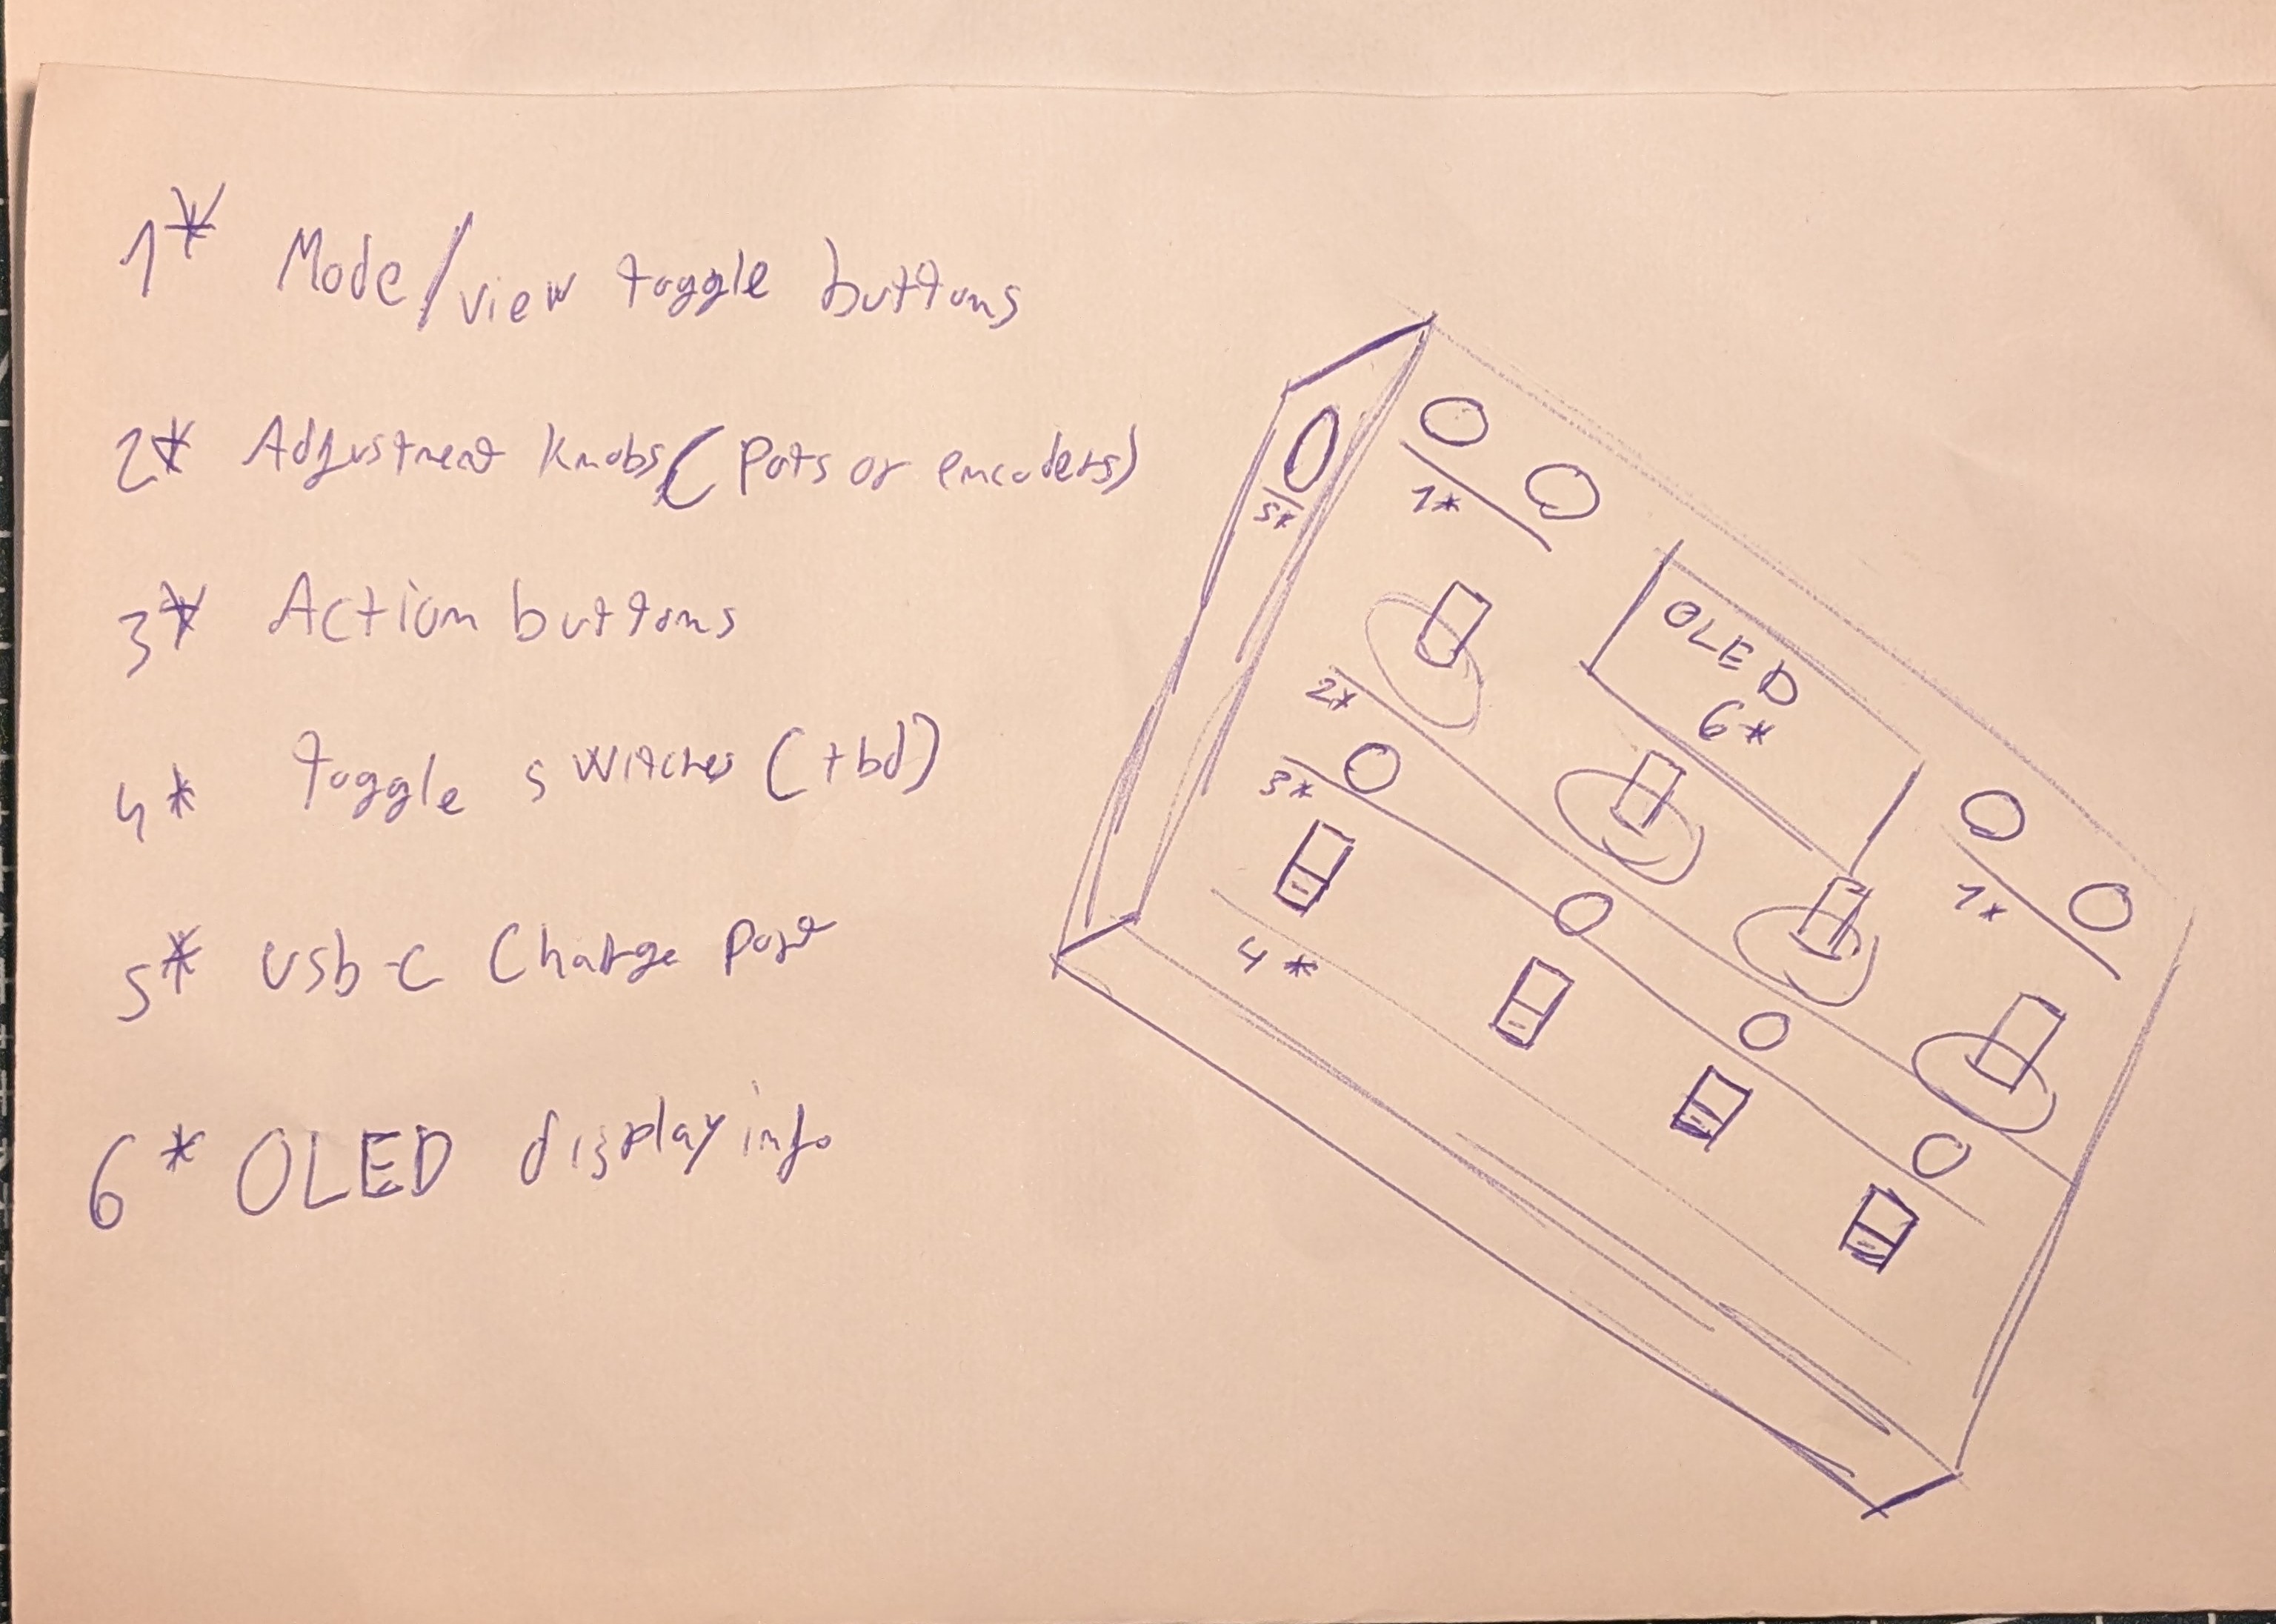 1* Mode/view toggle buttons
2* Adjustment Knobs (pots or encoders)
3* Action buttons
4* toggle switches (tbd)
5* usb-c Charge port
6* OLED display info
5*
1*
OLED
6*
2*
3*
1*
4*